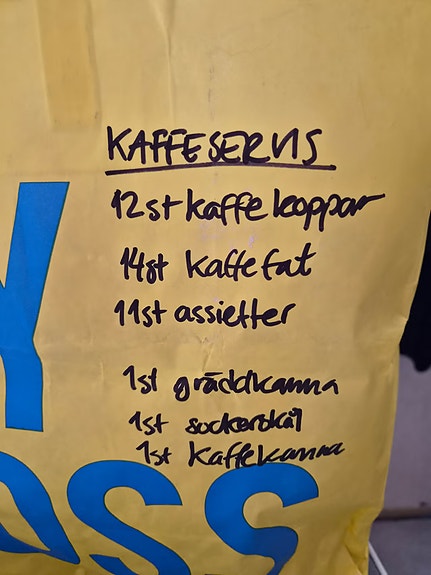 KAFFESERVIS
12st kaffekoppar
14st kaffefat
11st assietter
1st gräddkanna
1st sockerskål
1st kaffekanna
Y
OSS